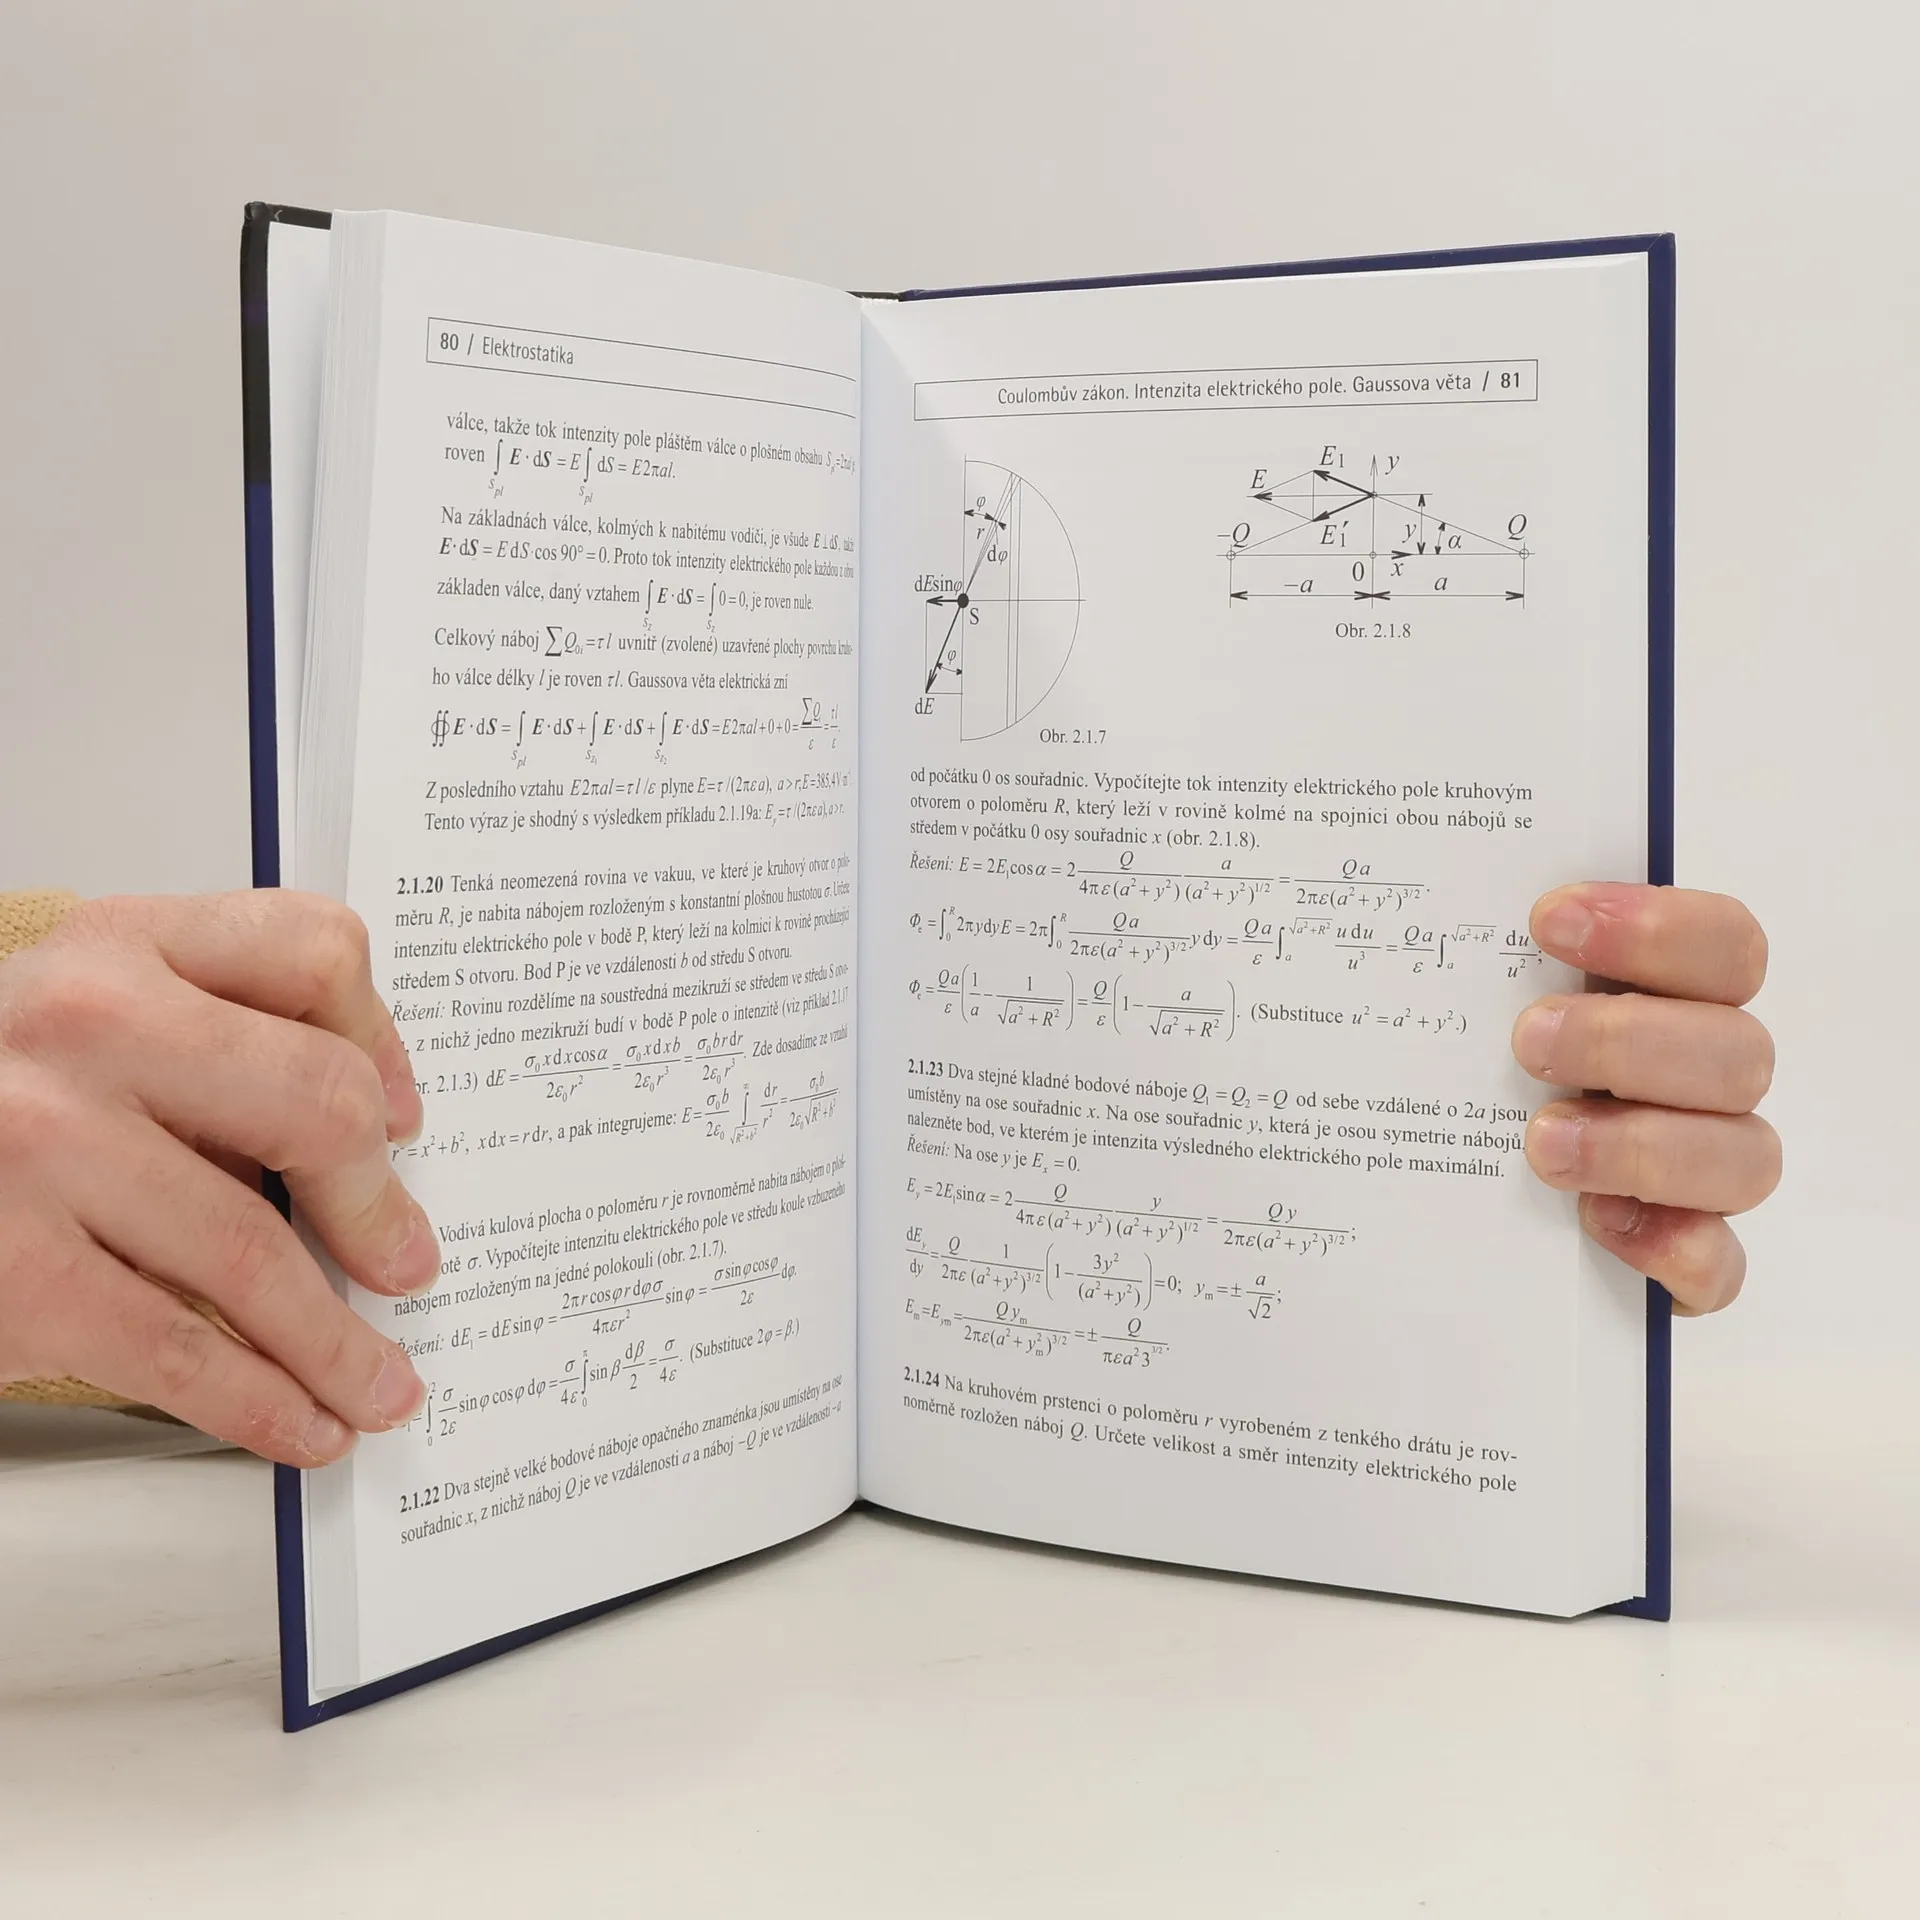 80 / Elektrostatika
válce, takže tok intenzity pole pláštěm válce o plošném obsahu
roven ∫_{S_pl} E · dS = E ∫_{S_pl} dS = E2πal.
Na základnách válce, kolmých k nabitému vodiči, je všude E ⊥ dS,
E · dS = E dS · cos 90° = 0. Proto tok intenzity elektrického pole každou z
základen válce, daný vztahem ∫_{S_z} E · dS = ∫_{S_z} 0 = 0, je roven nule.
Celkový náboj ∑Q_{0i} = τl uvnitř (zvolené) uzavřené plochy povrchu
ho válce délky l je roven τl. Gaussova věta elektrická zní
∯ E · dS = ∫_{S_pl} E · dS + ∫_{S_z1} E · dS + ∫_{S_z2} E · dS = E2πal + 0 + 0 = ∑Q/ε = τl/ε.
Z posledního vztahu E2πal = τl/ε plyne E = τ/(2πεa), a > r, E = 385,4 V m
Tento výraz je shodný s výsledkem příkladu 2.1.19a: E_y = τ/(2πεa), a > r.
2.1.20 Tenká neomezená rovina ve vakuu, ve které je kruhový otvor o polo-
měru R, je nabita nábojem rozloženým s konstantní plošnou hustotou σ. Určete
intenzitu elektrického pole v bodě P, který leží na kolmici k rovině procházející
středem S otvoru. Bod P je ve vzdálenosti b od středu S otvoru.
Řešení: Rovinu rozdělíme na soustředná mezikruží se středem ve středu S otvo-
z nichž jedno mezikruží budí v bodě P pole o intenzitě (viz příklad 2.1.17
br. 2.1.3) dE = σ₀xdxcosα/(2ε₀r²) = σ₀xdxb/(2ε₀r³) = σ₀brdr/(2ε₀r³). Zde dosadíme ze vztahů
r² = x² + b², xdx = rdr, a pak integrujeme: E = σ₀b/(2ε₀) ∫_{√(R²+b²)}^{∞} dr/r² = σ₀b/(2ε₀√(R²+b²))
Vodivá kulová plocha o poloměru r je rovnoměrně nabita nábojem o ploš-
otě σ. Vypočítejte intenzitu elektrického pole ve středu koule vzbuzeného
nábojem rozloženým na jedné polokouli (obr. 2.1.7).
Řešení: dE₁ = dE sinφ = (2πr cosφ r dφσ)/(4πεr²) sinφ = (σ sinφ cosφ)/(2ε) dφ.
= ∫₀^{/2} σ/(2ε) sinφ cosφ dφ = σ/(4ε) ∫₀^{π} sinβ dβ/2 = σ/(4ε). (Substituce 2φ = β.)
2.1.22 Dva stejně velké bodové náboje opačného znaménka jsou umístěny na ose
souřadnic x, z nichž náboj Q je ve vzdálenosti a a náboj −Q je ve vzdálenosti −a
Coulombův zákon. Intenzita elektrického pole. Gaussova věta / 81
φ
r
dφ
dEsinφ
S
φ
dE
Obr. 2.1.7
E₁ y
E
−Q E₁′ y α Q
0 x
−a a
Obr. 2.1.8
od počátku 0 os souřadnic. Vypočítejte tok intenzity elektrického pole kruhovým
otvorem o poloměru R, který leží v rovině kolmé na spojnici obou nábojů se
středem v počátku 0 osy souřadnic x (obr. 2.1.8).
Řešení: E = 2E₁cosα = 2 Q/(4πε(a² + y²)) a/(a² + y²)^{1/2} = Qa/(2πε(a² + y²)^{3/2}).
Φ_e = ∫₀^R 2πydyE = 2π ∫₀^R Qa/(2πε(a² + y²)^{3/2}) ydy = Qa/ε ∫_a^{√(a²+R²)} udu/u³ = Qa/ε ∫_a^{√(a²+R²)} du/u²;
Φ_e = Qa/ε (1/a − 1/√(a² + R²)) = Q/ε (1 − a/√(a² + R²)). (Substituce u² = a² + y².)
2.1.23 Dva stejné kladné bodové náboje Q₁ = Q₂ = Q od sebe vzdálené o 2a jsou
umístěny na ose souřadnic x. Na ose souřadnic y, která je osou symetrie nábojů,
nalezněte bod, ve kterém je intenzita výsledného elektrického pole maximální.
Řešení: Na ose y je E_x = 0.
E_y = 2E₁sinα = 2 Q/(4πε(a² + y²)) y/(a² + y²)^{1/2} = Qy/(2πε(a² + y²)^{3/2});
dE_y/dy = Q/(2πε) 1/(a² + y²)^{3/2} (1 − 3y²/(a² + y²)) = 0; y_m = ± a/√2;
E_m = E_ym = Qy_m/(2πε(a² + y_m²)^{3/2}) = ± Q/(πεa²3^{3/2}).
2.1.24 Na kruhovém prstenci o poloměru r vyrobeném z tenkého drátu je rov-
noměrně rozložen náboj Q. Určete velikost a směr intenzity elektrického pole